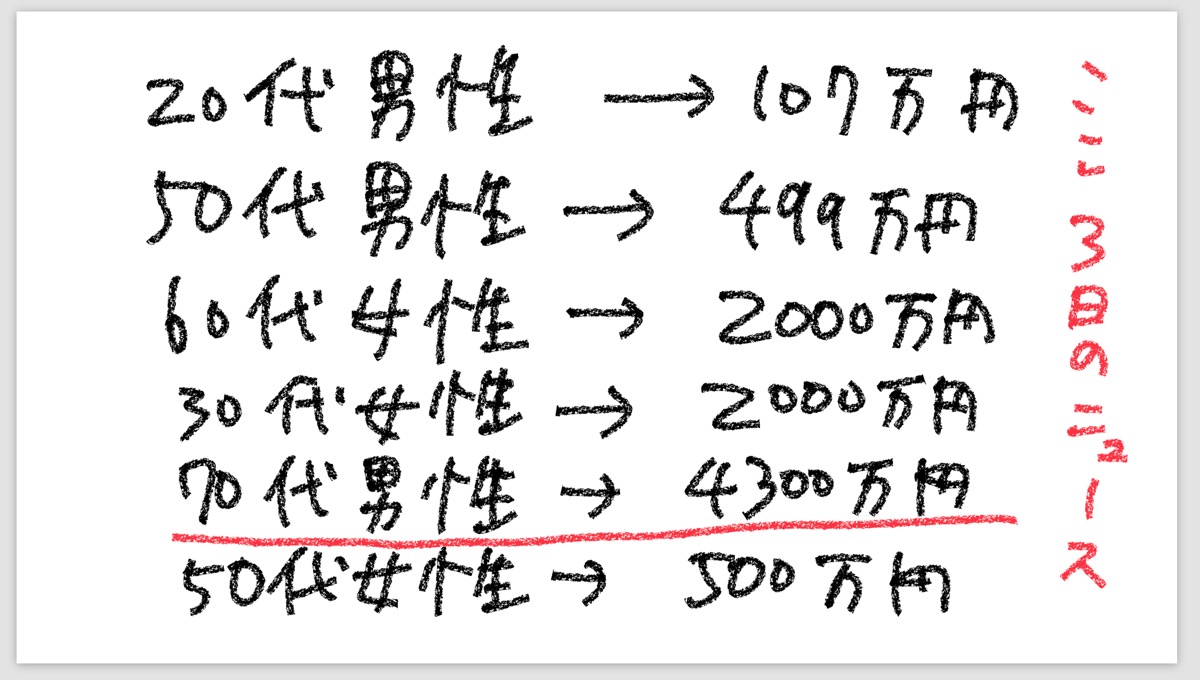 20代男性 → 107万円
50代男性 → 499万円
60代女性 → 2000万円
30代女性 → 2000万円
70代男性 → 4300万円
50代女性 → 500万円
ここ3日のニュース